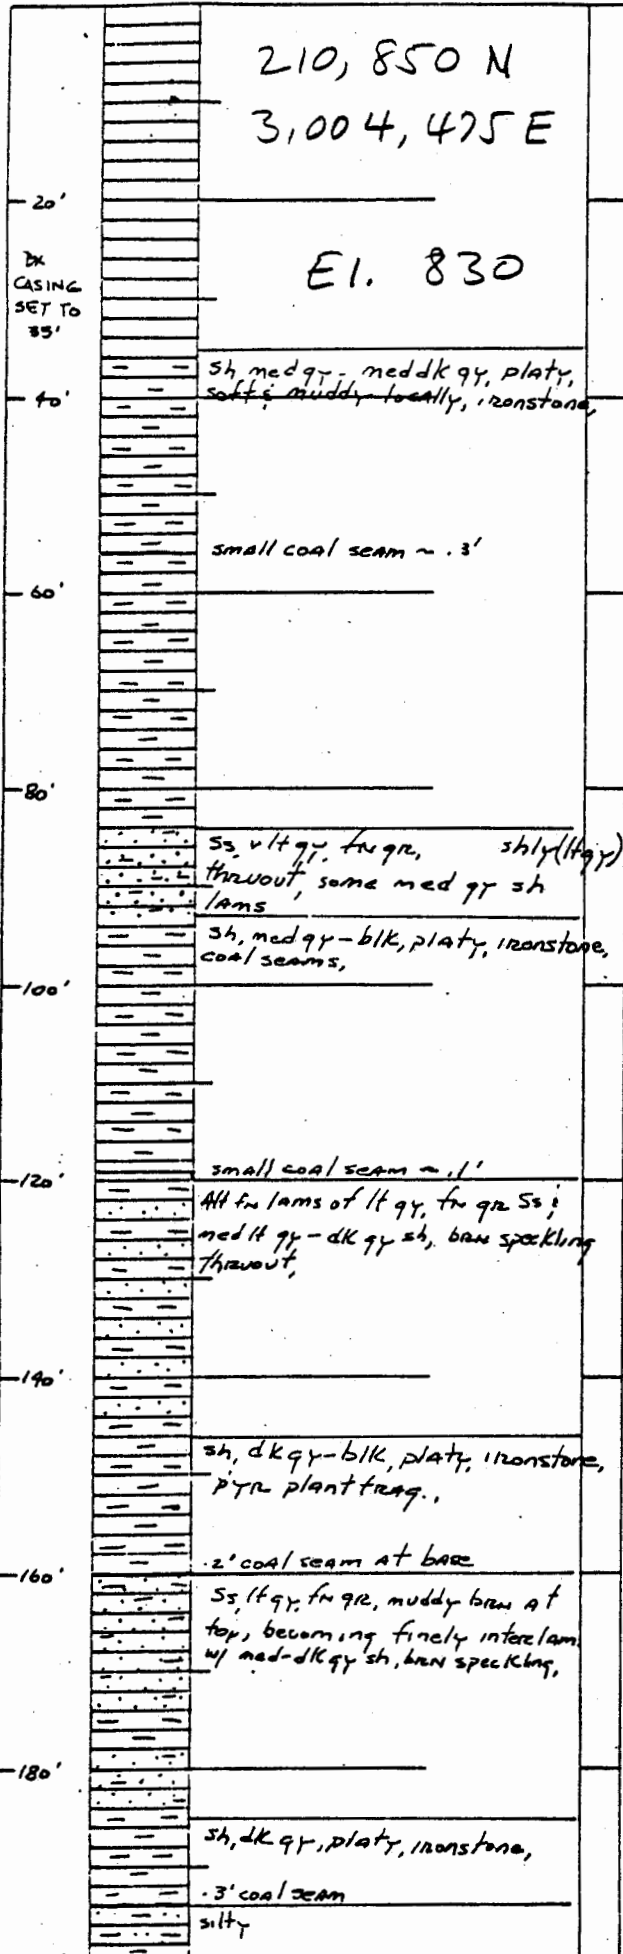 210,850 N
3,004,475 E
20'
Bx
CASING
SET TO
35'
El. 830
sh, med gy - med dk gy, platy,
40'
soft & muddy locally, ironstone,
small coal seam ~ .3'
60'
80'
Ss, v lt gy, fn gr, shly (lt gy)
thruout, some med gy sh
lams
sh, med gy - blk, platy, ironstone,
coal seams,
100'
small coal seam ~ .1'
120'
Alt fn lams of lt gy, fn gr Ss &
med lt gy - dk gy sh, brn speckling
thruout,
140'
sh, dk gy - blk, platy, ironstone,
pyr plant frag.,
.2' coal seam at base
160'
Ss, lt gy, fn gr, muddy brn at
top, becoming finely interlam
w/ med - dk gy sh, brn speckling,
180'
sh, dk gy, platy, ironstone,
.3' coal seam
silty